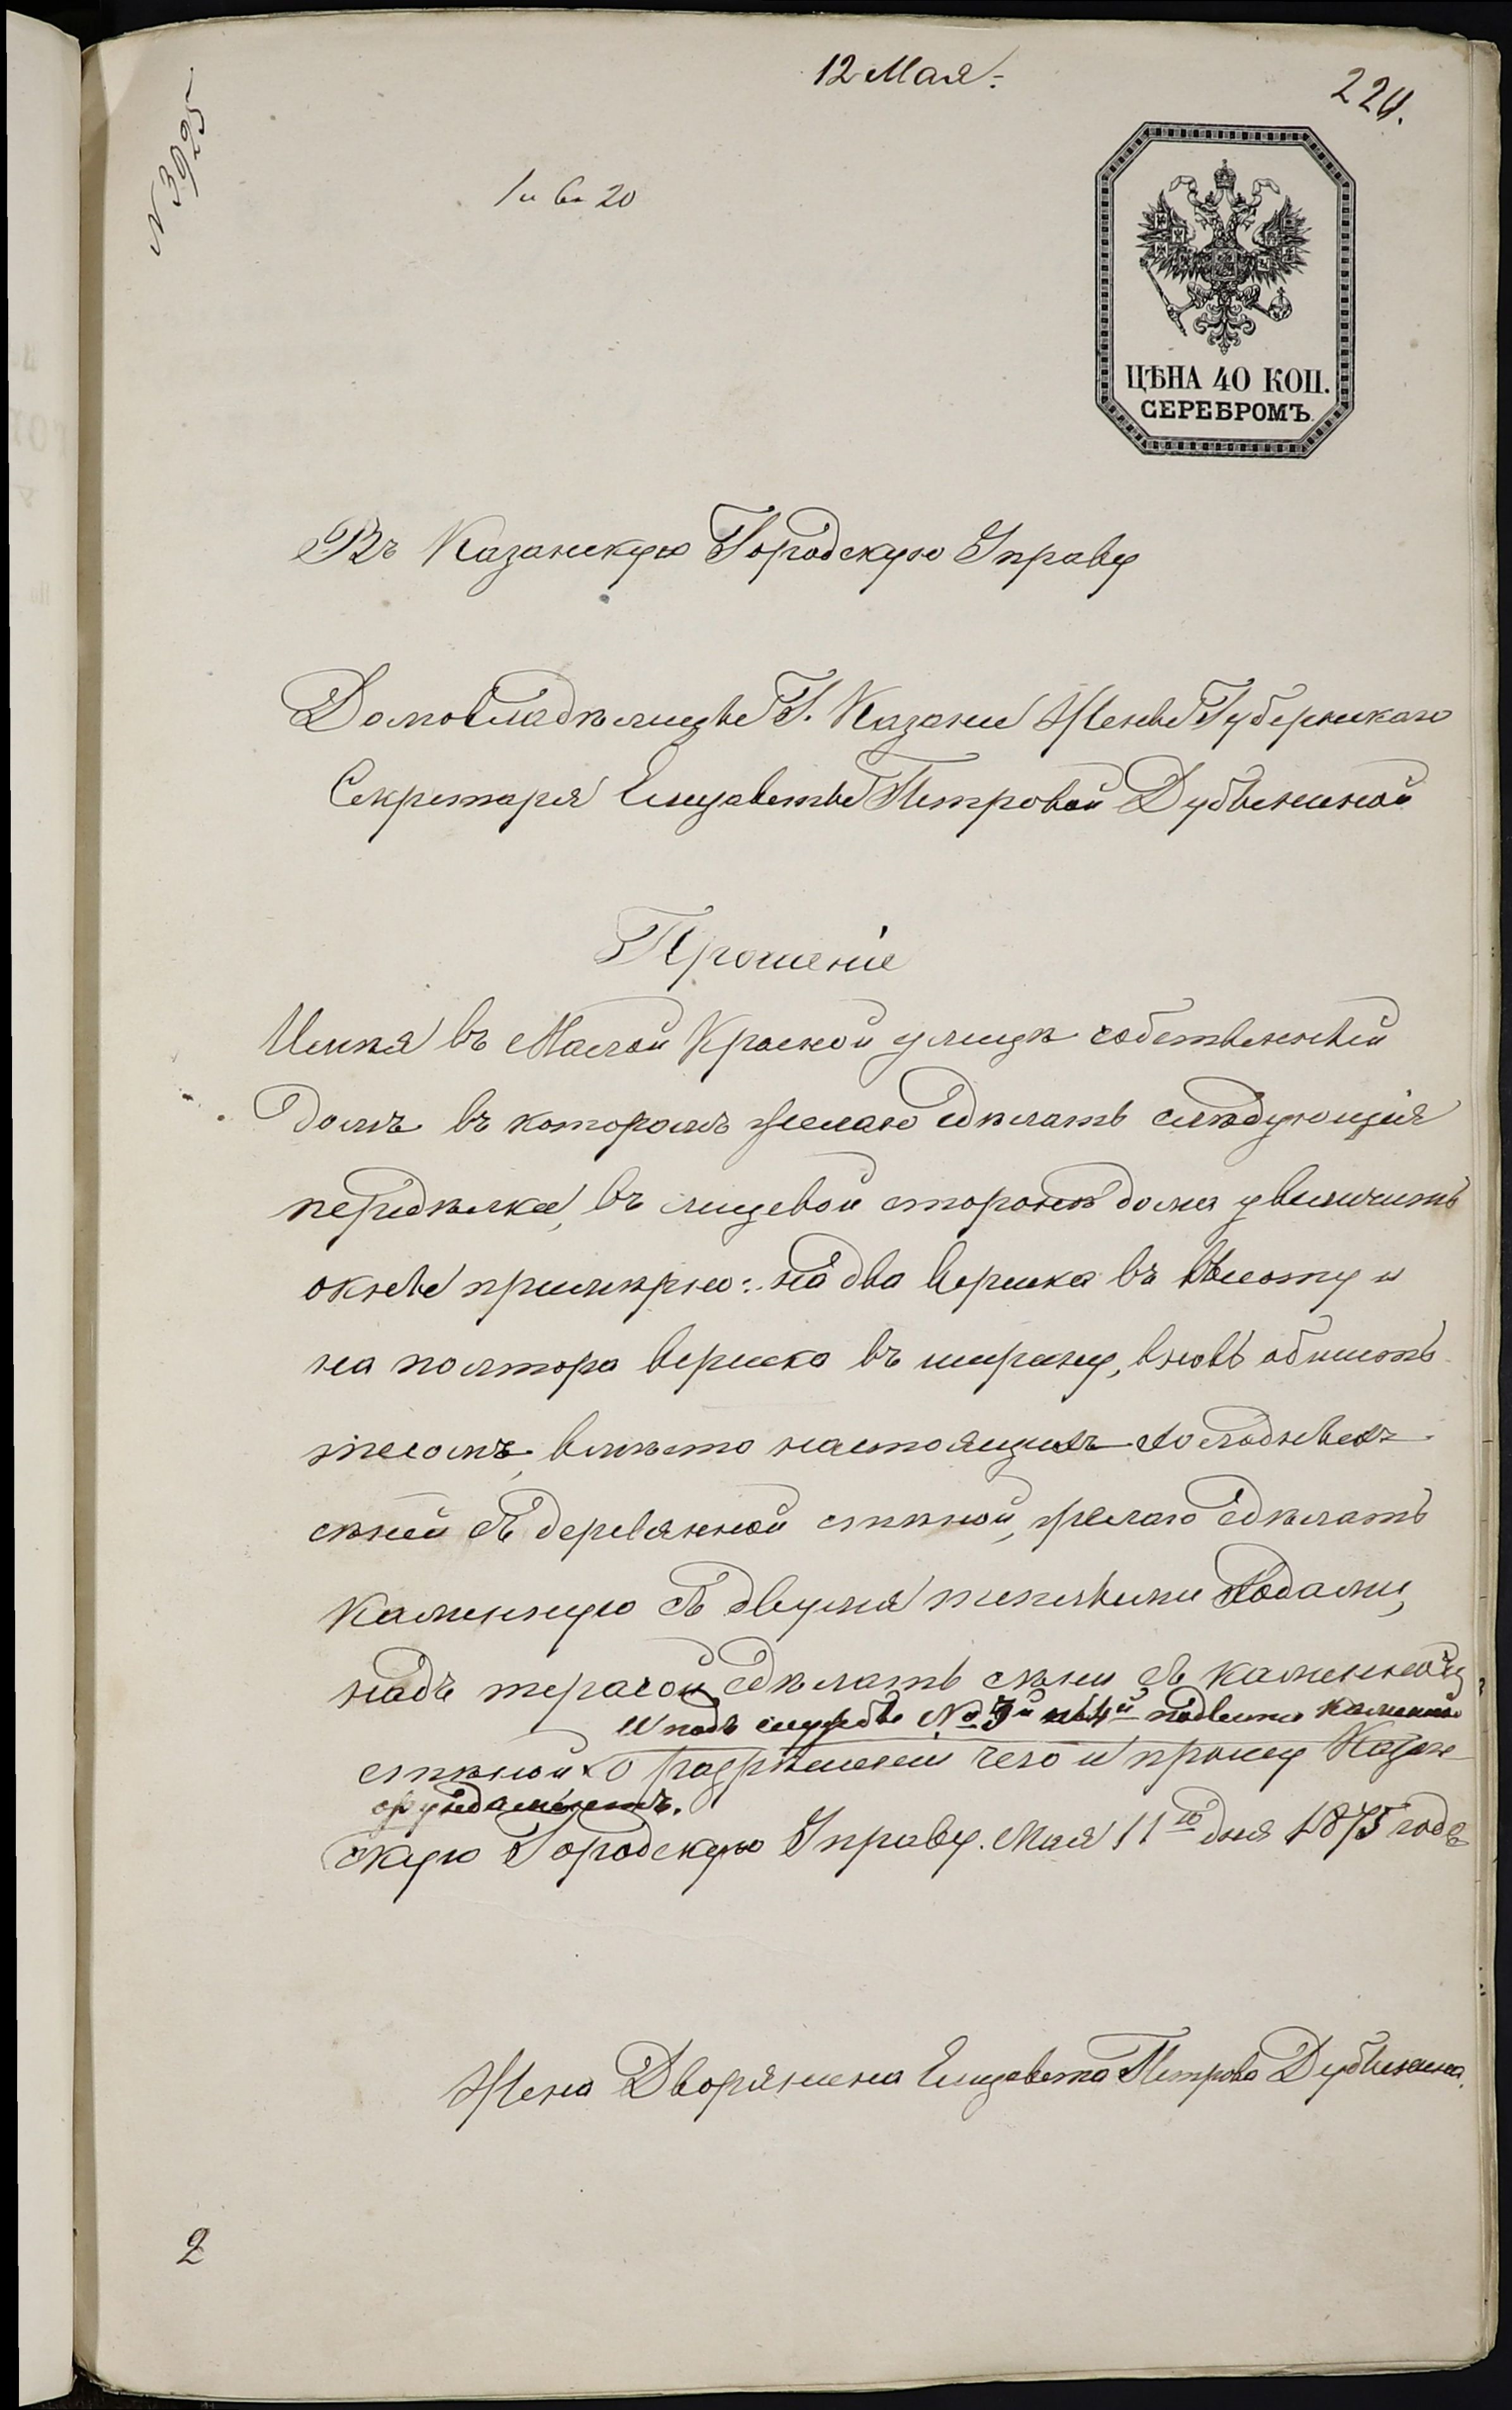 12 Мая.
224.
N 3925
ЦѢНА 40 КОП.
СЕРЕБРОМЪ.
Въ Казанскую Городскую Управу
Домовладѣлицы Г. Казани Жены Губернскаго
Секретаря Елизаветы Петровой Дубыниной
Прошеніе
Имѣя въ Малой Красной улицѣ собственный
домъ въ которомъ желаю сдѣлать слѣдующія
передѣлки, въ лицевой сторонѣ дома увеличить
окны примѣрно: на два вершка въ высоту и
на полтора вершка въ ширину, вновь обшить
тесомъ, вмѣсто настоящихъ холодныхъ
сѣней съ деревянной стѣной, желаю сдѣлать
каменную съ двумя теплыми ходами,
надъ терасой сдѣлать сѣни съ каменной
и подъ службы № 3й и 4й подвести каменной
стѣной о разрѣшеніи чего и прошу Казан-
фундаментъ.
скую Городскую Управу. Мая 11го дня 1875 года
Жена Дворянина Елизавета Петрова Дубынина.
2